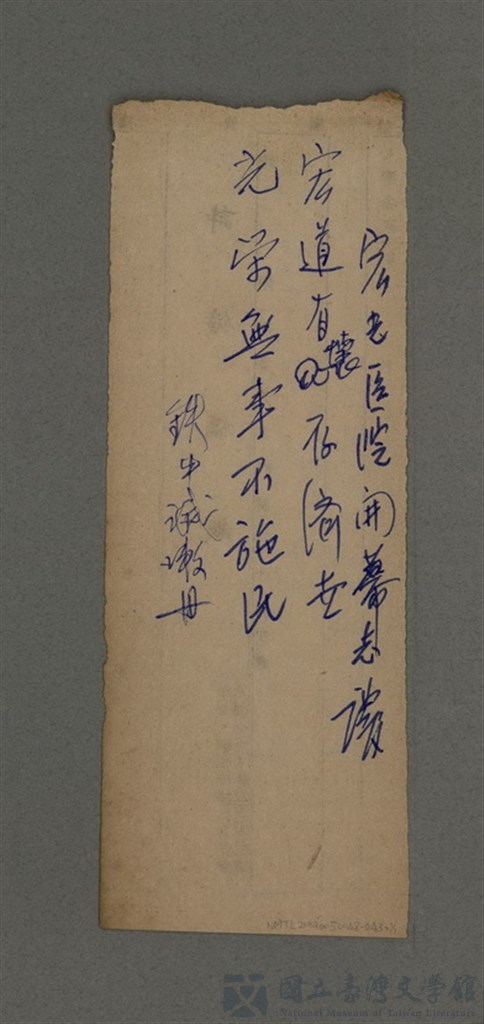 宏光医院開幕志慶
宏道有懷存濟世
光榮無事不施民
鉄中誠敬
国立台灣文学館
National Museum of Taiwan Literature